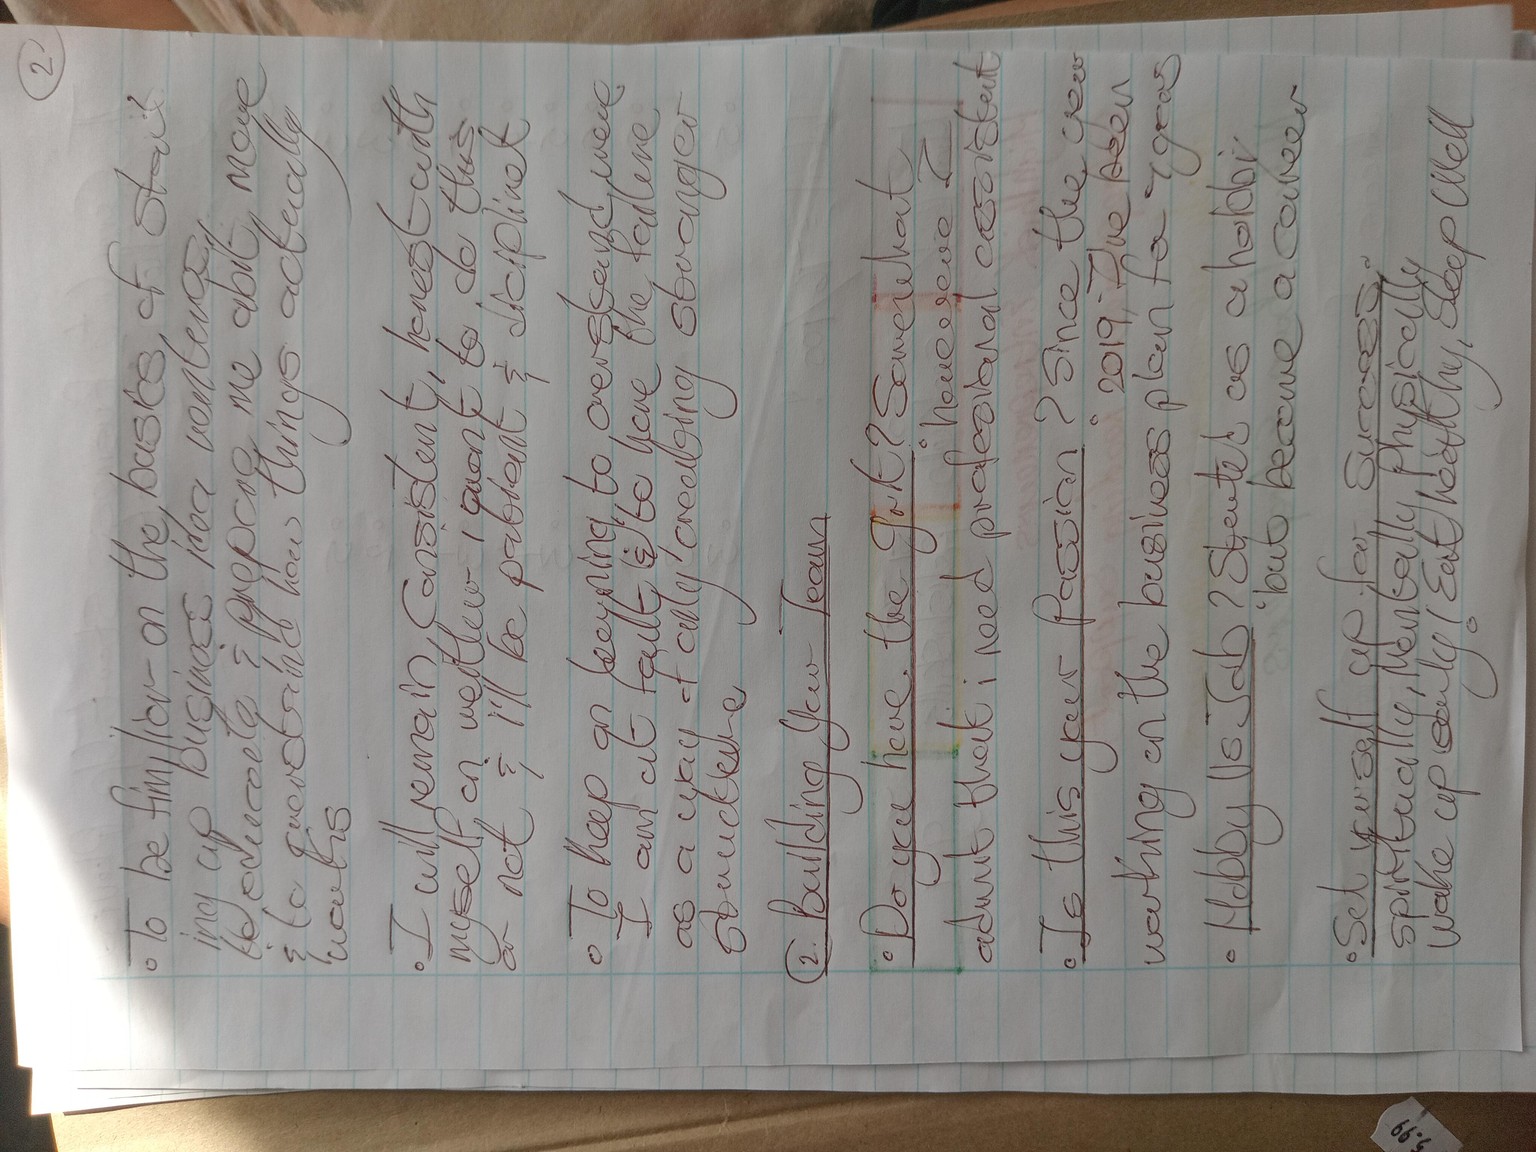 2
• To be fimilior on the basics of start
ing up business idea nontheless,
to educate & prepare me abit more
& to understand how things actually
works
• I will remain Consistent, honest with
myself on wether i want to do this
or not & i'll be patient & disciplinet
• To keep on keyning to overstand were
I am at fault & to your the failure
as a way of only creabing stronger
② Building Your Team
• Do you have the Grit? Somewhat
however I
admit that i need professional assistent
• Is this your Passion? Since the year
2019, I've been
working on the business plan for years
• Hobby Vs Job? Started as a hobby
but became a career
• Set yourself up for Success.
Spiritually, Mentally Physically
Wake up early! Eat healthy, Sleep Well
3.99